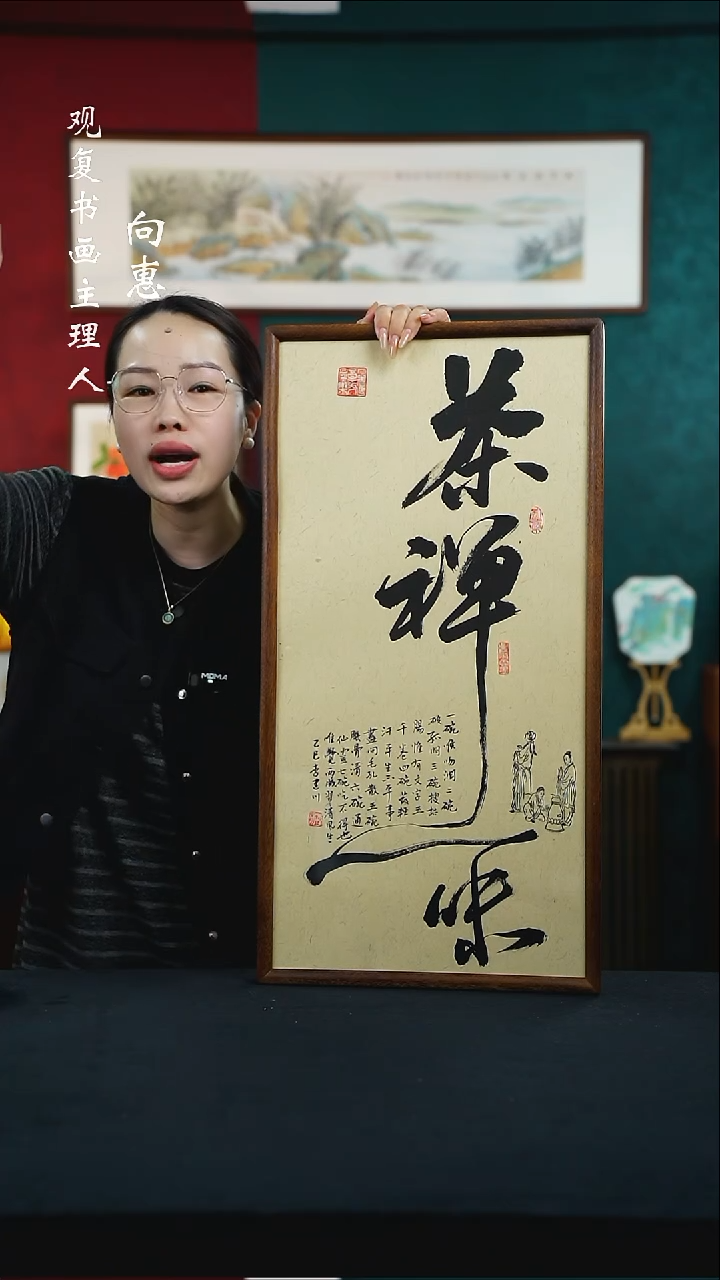 观复书画主理人
向惠
茶禅一味
一碗喉吻润二碗
破孤闷三碗搜枯
肠惟有文字五
千卷四碗发轻
汗平生不平事
尽向毛孔散五碗
肌骨清六碗通
仙灵七碗吃不得也
唯觉两腋习习清风生
乙巳李建川
MOMA